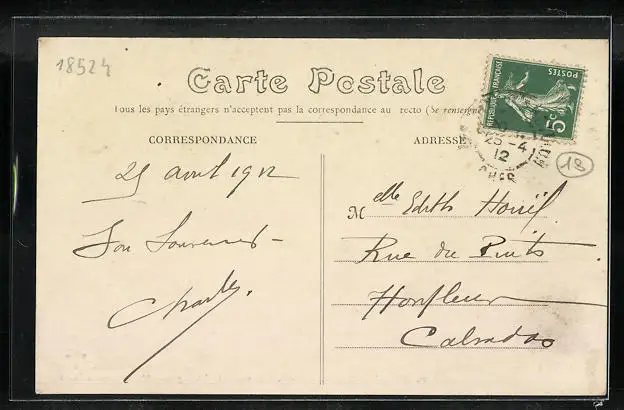 18524
Carte Postale
Tous les pays étrangers n'acceptent pas la correspondance au recto (Se renseigne
CORRESPONDANCE
ADRESSE
POSTES
REPUBLIQUE FRANÇAISE
5c
25-4
12
CHER
18
25 avril 1912
Bon Souvenir
Charles
Melle Edith
Rue du Puits
Honfleur
Calvados